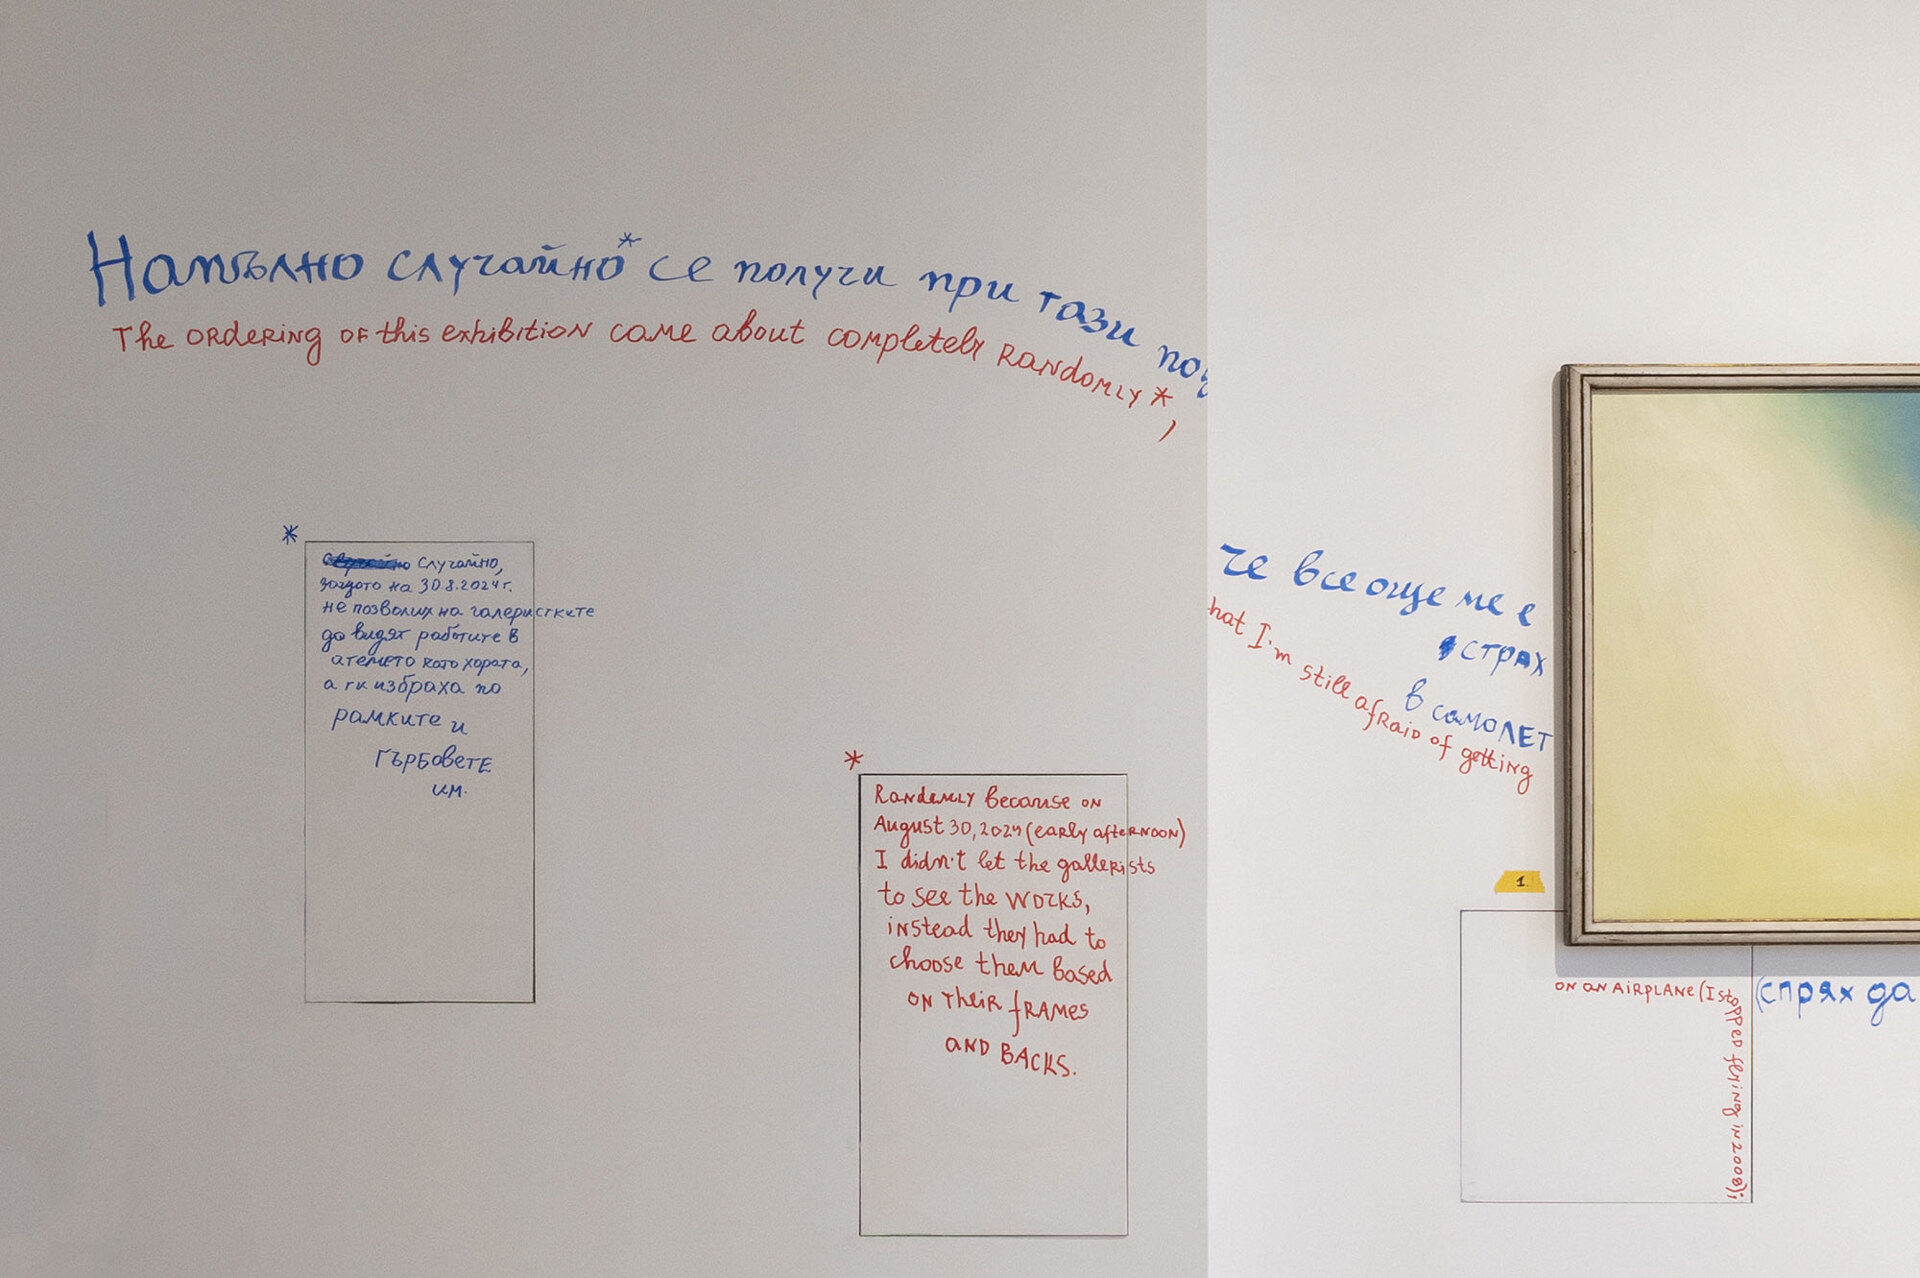 Напълно случайно* се получи при тази
The ordering of this exhibition came about completely randomly*,
*
случайно,
защото на 30.8.2024 г.
не позволих на галеристките
да видят работите в
ателието като хората,
а ги избраха по
рамките и
гърбовете
им.
*
Randomly because on
August 30, 2024 (early afternoon)
I didn't let the gallerists
to see the works,
instead they had to
choose them based
on their frames
and backs.
че все още ме е
страх
в самолет
hat I'm still afraid of getting
1
on an airplane (I stopped flying in 2008);
(спрях да